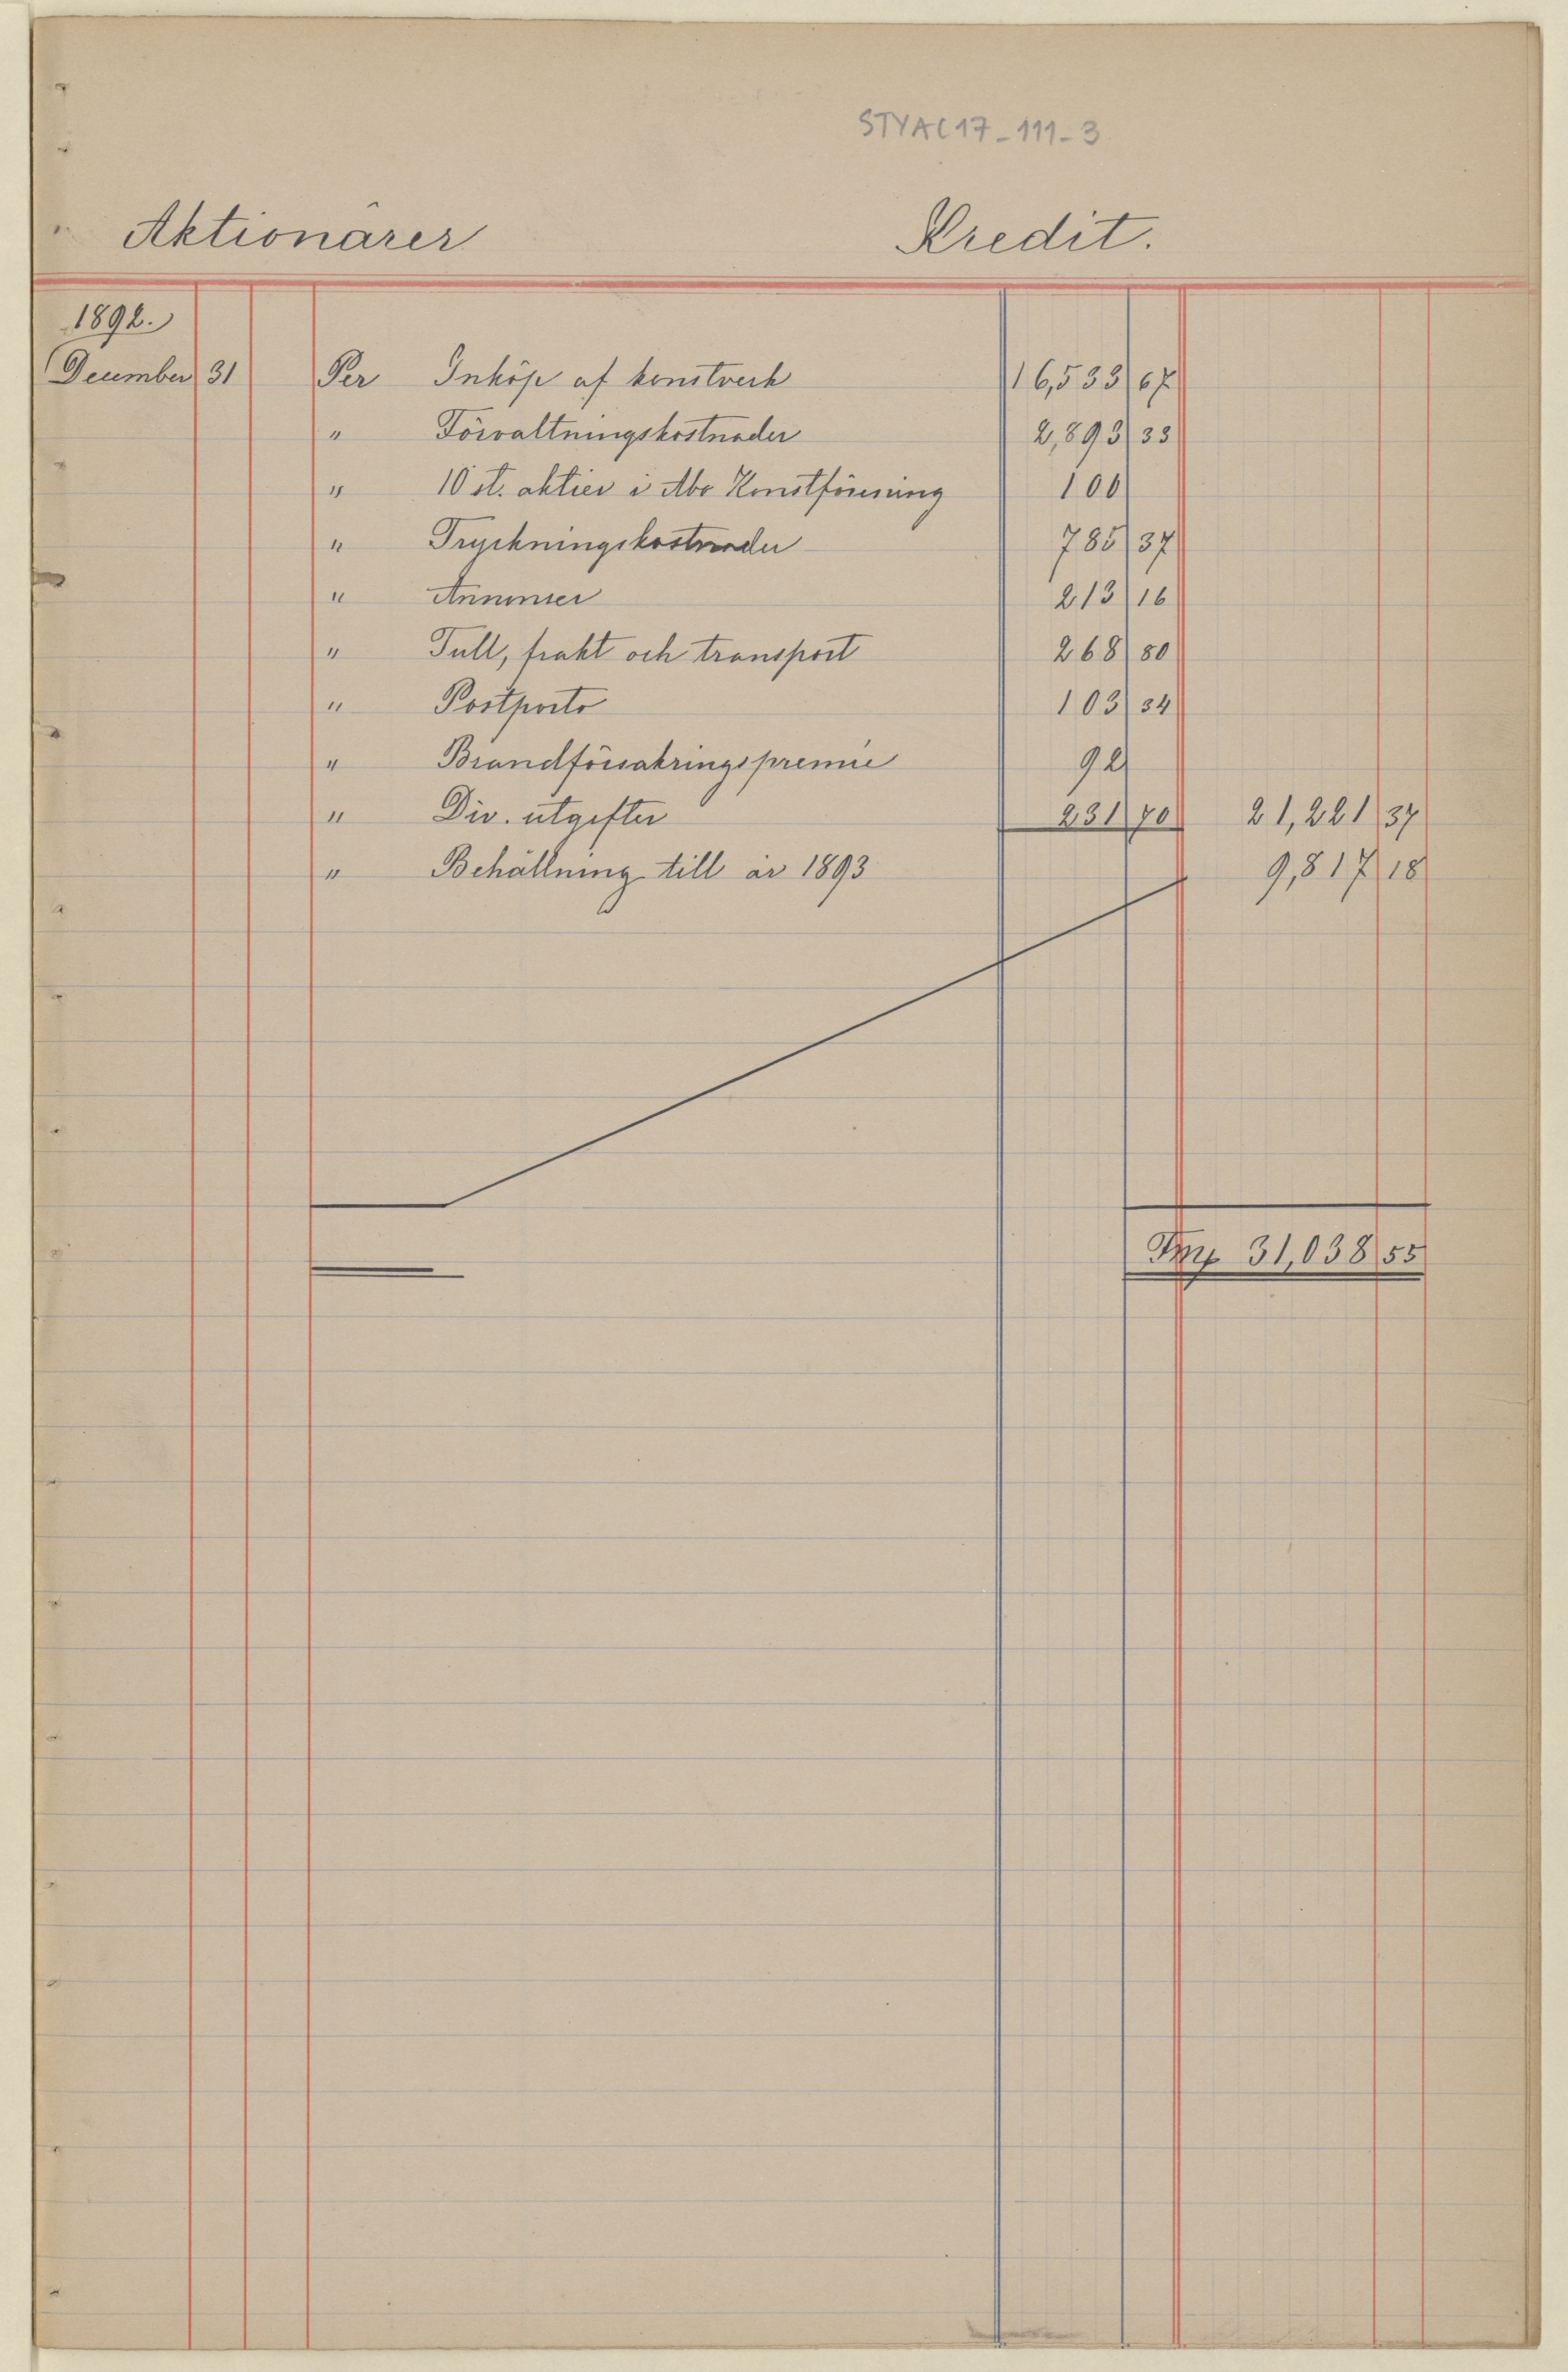 STYAC17_111_3
Aktionärer Kredit.
1892.
December 31 Per Inköp af konstverk 16,533 67
" Förvaltningskostnader 2,893 33
" 10 st. aktier i Åbo Konstförening 100
" Tryckningskostnader 785 37
" Annonser 213 16
" Tull, frakt och transport 268 80
" Postporto 103 34
" Brandförsäkringspremie 92
" Div. utgifter 231 70 21,221 37
" Behållning till år 1893 9,817 18
Fmk 31,038 55